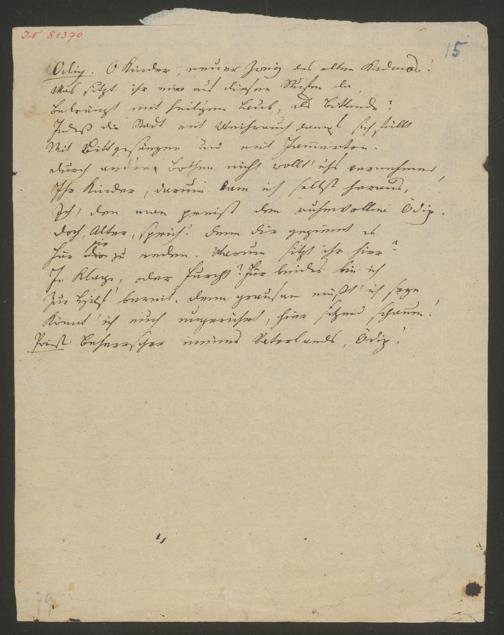 IN 81370
15
Ödip. O Kinder, neuer Zweig des alten Kadmos!
Was sitzt ihr mir auf diesen Stufen da,
Bekränzt mit heiligem Laub, als Bittende?
Indeß die Stadt mit Weihrauchdampf sich füllt
Mit Bittgesängen und mit Jammerton.
Durch andere Bothen nicht wollt' ichs vernehmen,
Ihr Kinder, darum kam ich selbst heraus,
Ich, den man preist den ruhmvollen Ödip.
Doch Alter, sprich! denn dir geziemt es
Für sie zu reden. Warum sitzt ihr hier?
In Klage, oder Furcht? Für beides bin ich
Zu Hilf' bereit. Denn grausam müßt' ich seyn
Könnt' ich euch ungerührt, hier sitzen schauen!
Priest. Beherrscher meines Vaterlands, Ödip!
79